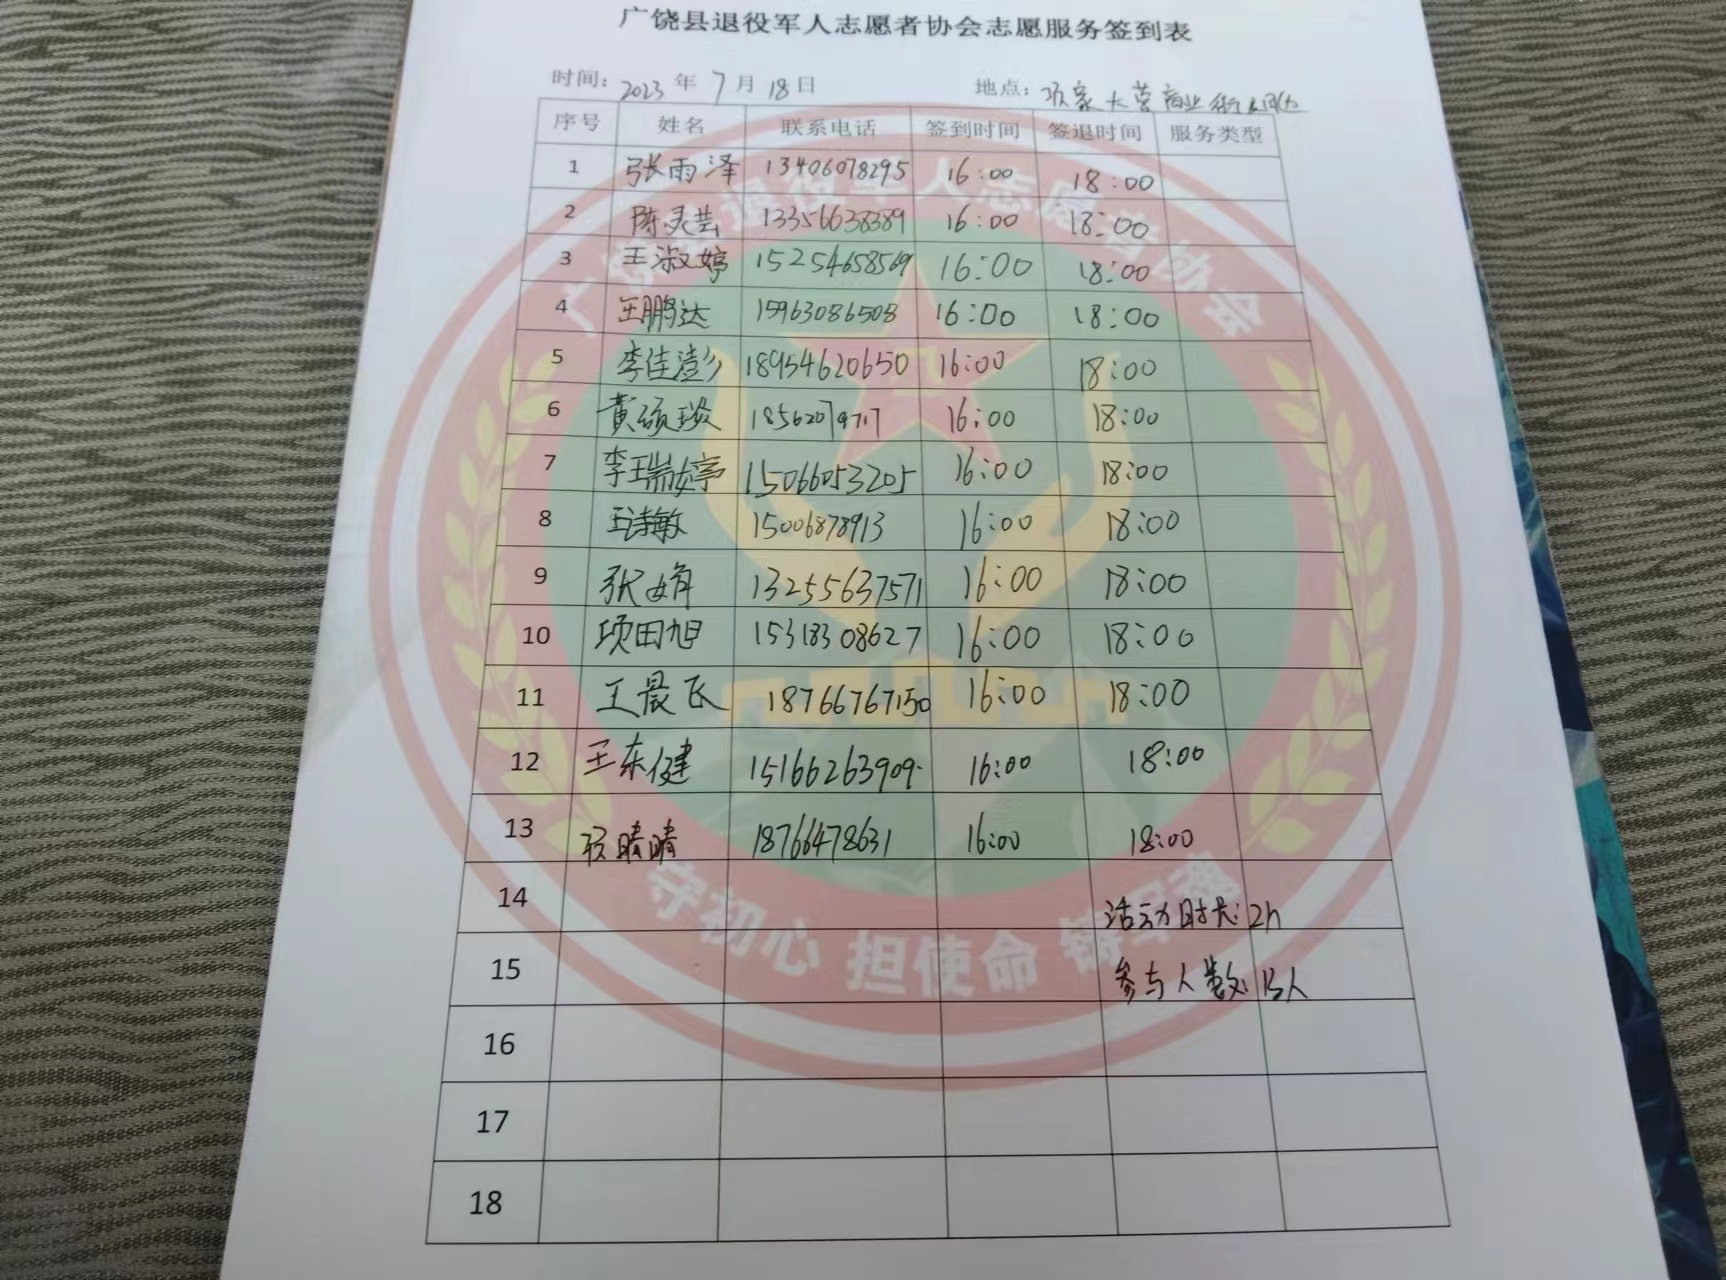 广饶县退役军人志愿者协会志愿服务签到表
时间: 2023 年 7 月 18 日 地点: 项家大营商业街
序号 姓名 联系电话 签到时间 签退时间 服务类型
1 张雨泽 13406078295 16:00 18:00
2 陈灵芸 13356638389 16:00 18:00
3 王淑婷 15254658569 16:00 18:00
4 王鹏达 15963086508 16:00 18:00
5 李佳澎 18954620650 16:00 18:00
6 黄硕琰 16:00 18:00
7 李瑞婷 15066053205 16:00 18:00
8 王诗敏 15006878913 16:00 18:00
9 张娟 13255637571 16:00 18:00
10 项田旭 15318308627 16:00 18:00
11 王晨飞 18766767150 16:00 18:00
12 王东健 15166263909 16:00 18:00
13 项晴晴 18766478631 16:00 18:00
14 活动时长: 2h
15 参与人数: 13人
16
17
18
广饶县退役军人志愿者协会
守初心 担使命 铸军魂